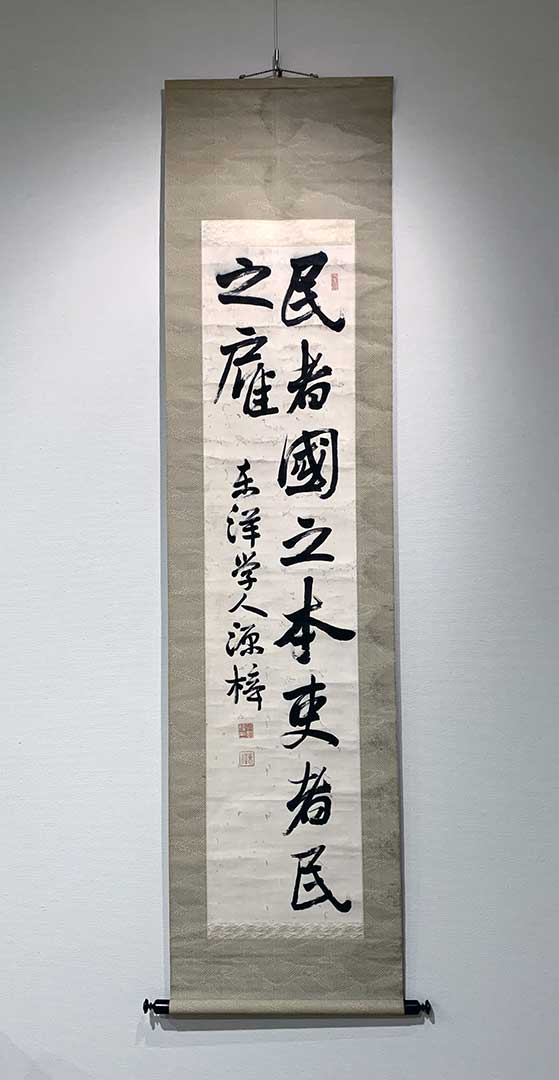 民者國之本吏者民
之雇
东洋学人源梓